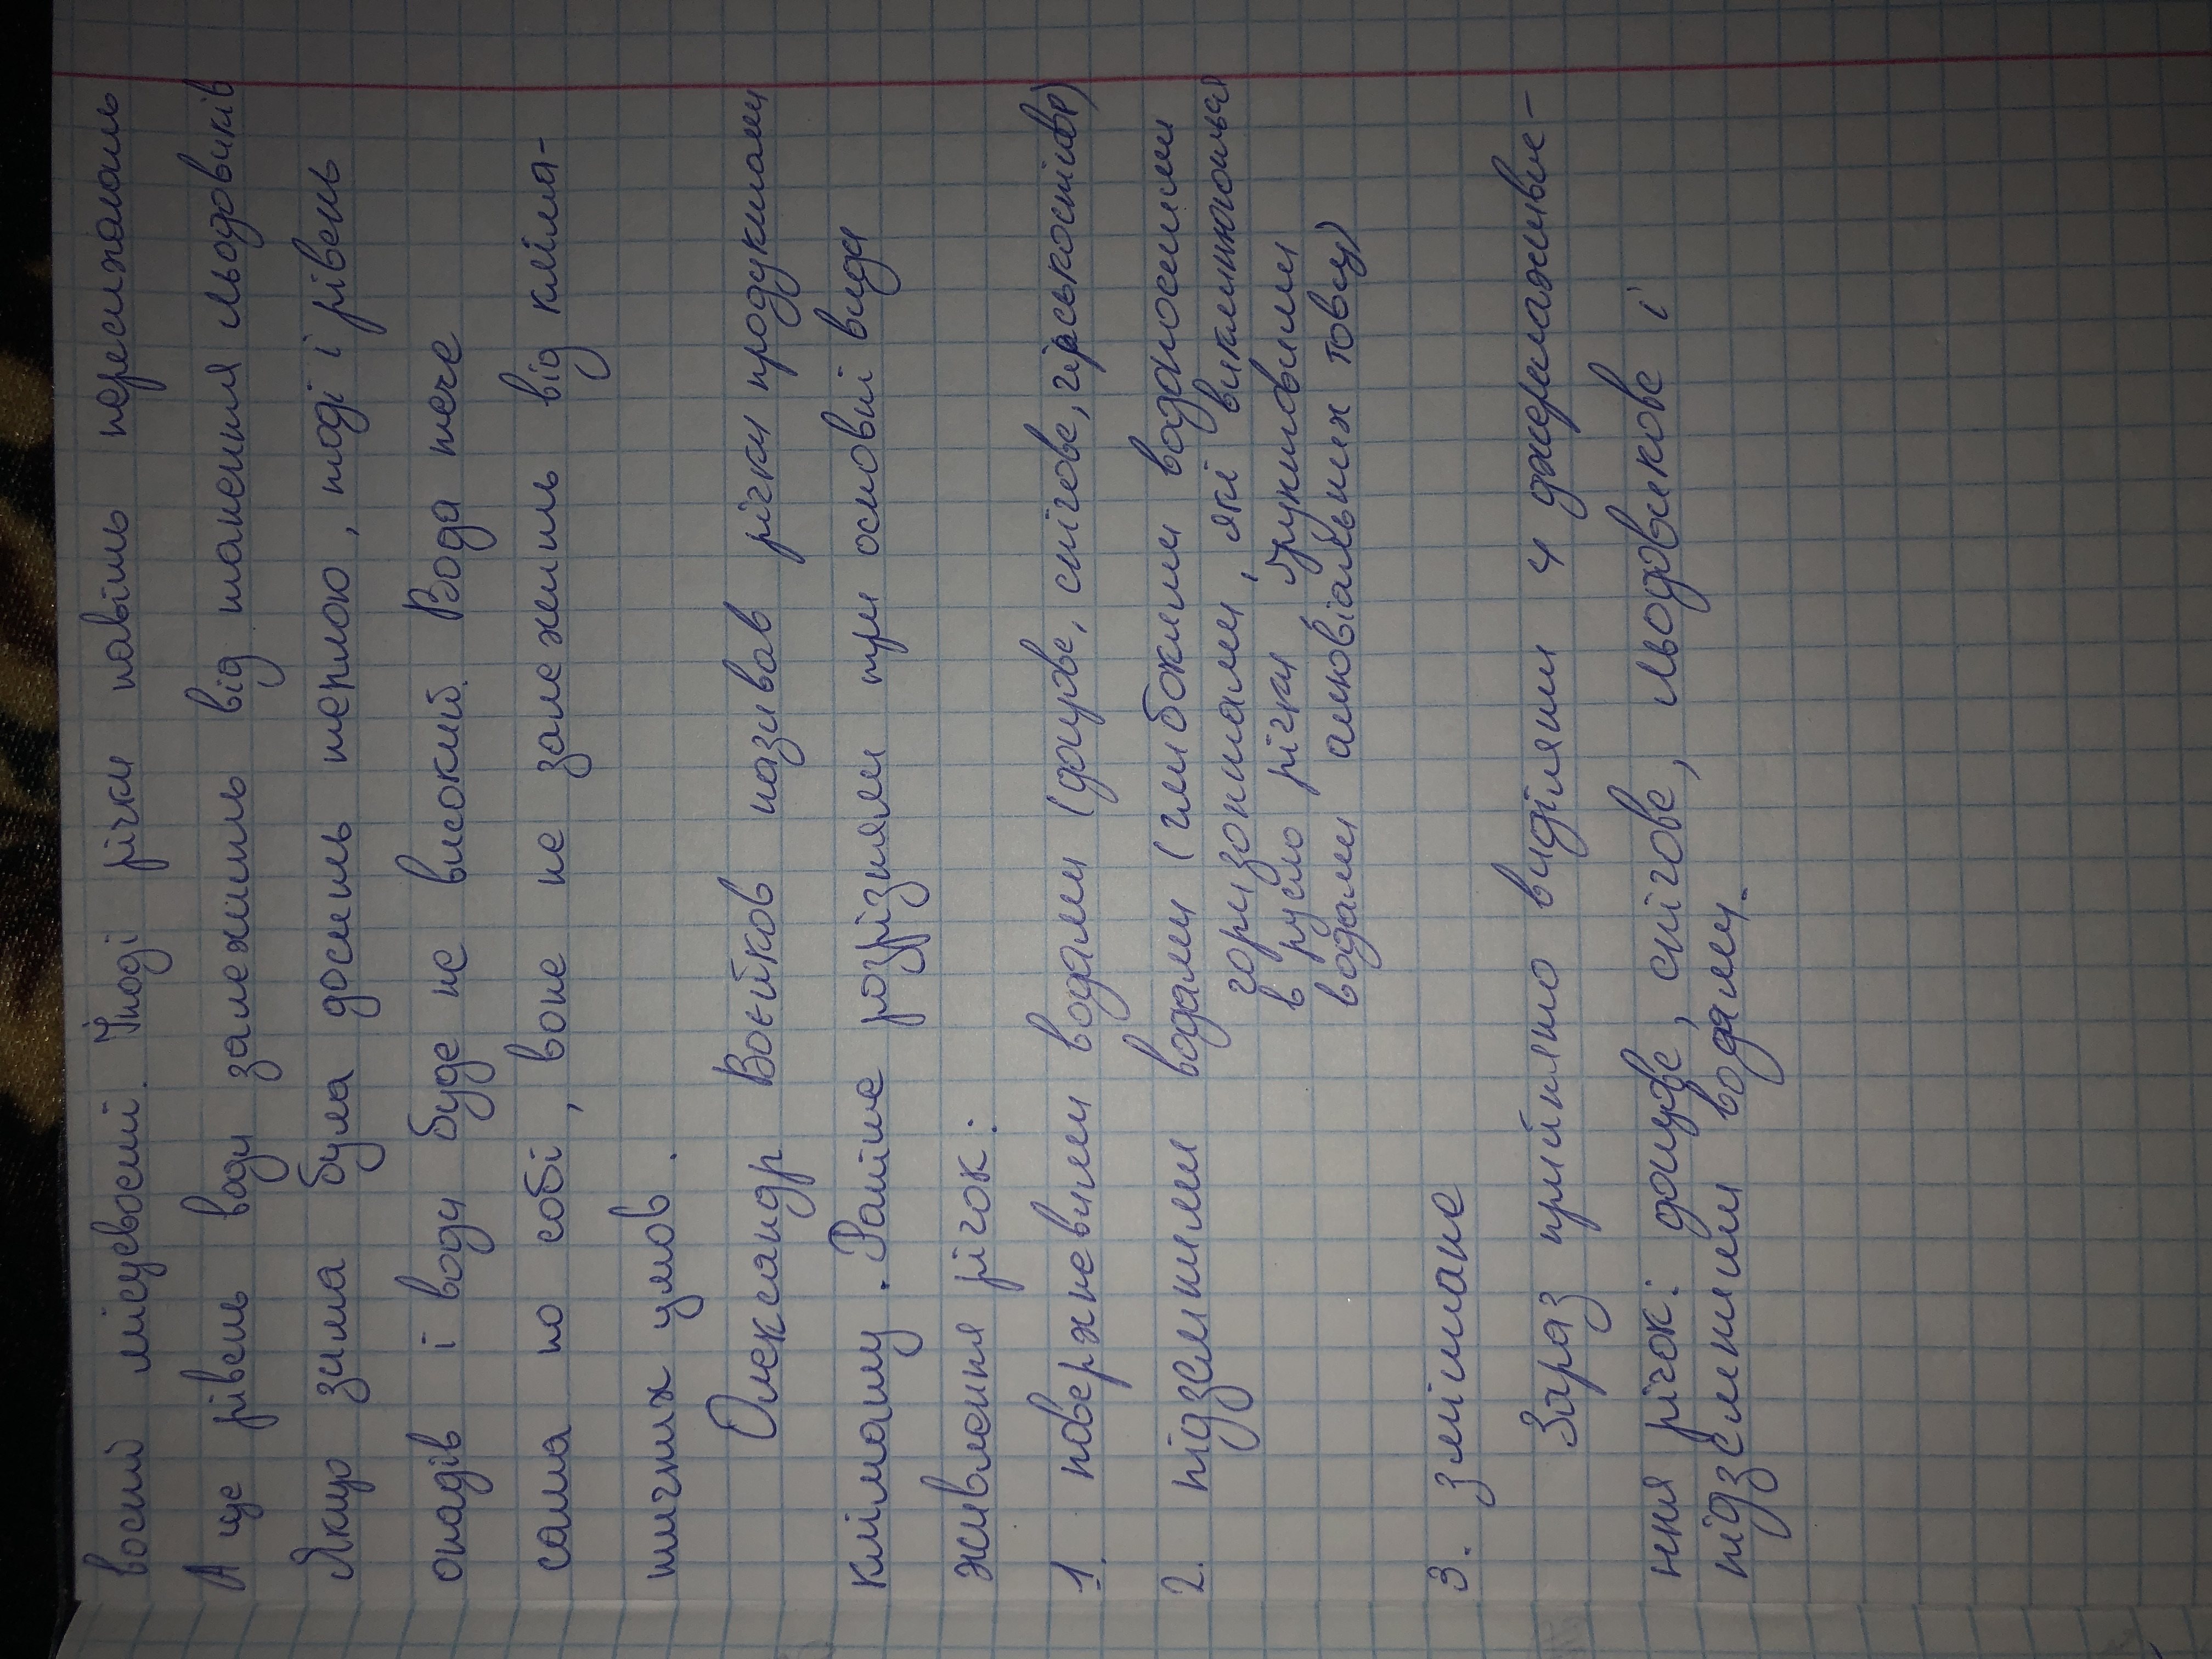 вості місцевості. Іноді річки навіть пересихають
А ще рівень води залежить від танення льодовиків
Якщо зима була досить теплою, тоді і рівень
опадів і води буде не високий. Вода тече
сама по собі, воне не залежить від кліма-
тичних умов.
Олександр Воєйков називав річки продуктами
клімату. Раніше розрізняли три основні види
живлення річок:
1. поверхневими водами (дощове, снігове,
2. підземними водами (глибокими водоносними
горизонтами, які виклинюються
в русло річки ґрунтовими
водами алювіальних товщ)
3. змішане
Зараз прийнято виділяти 4 джерелаживле-
ння річок: дощове, снігове, льодовикове і
підземними водами.